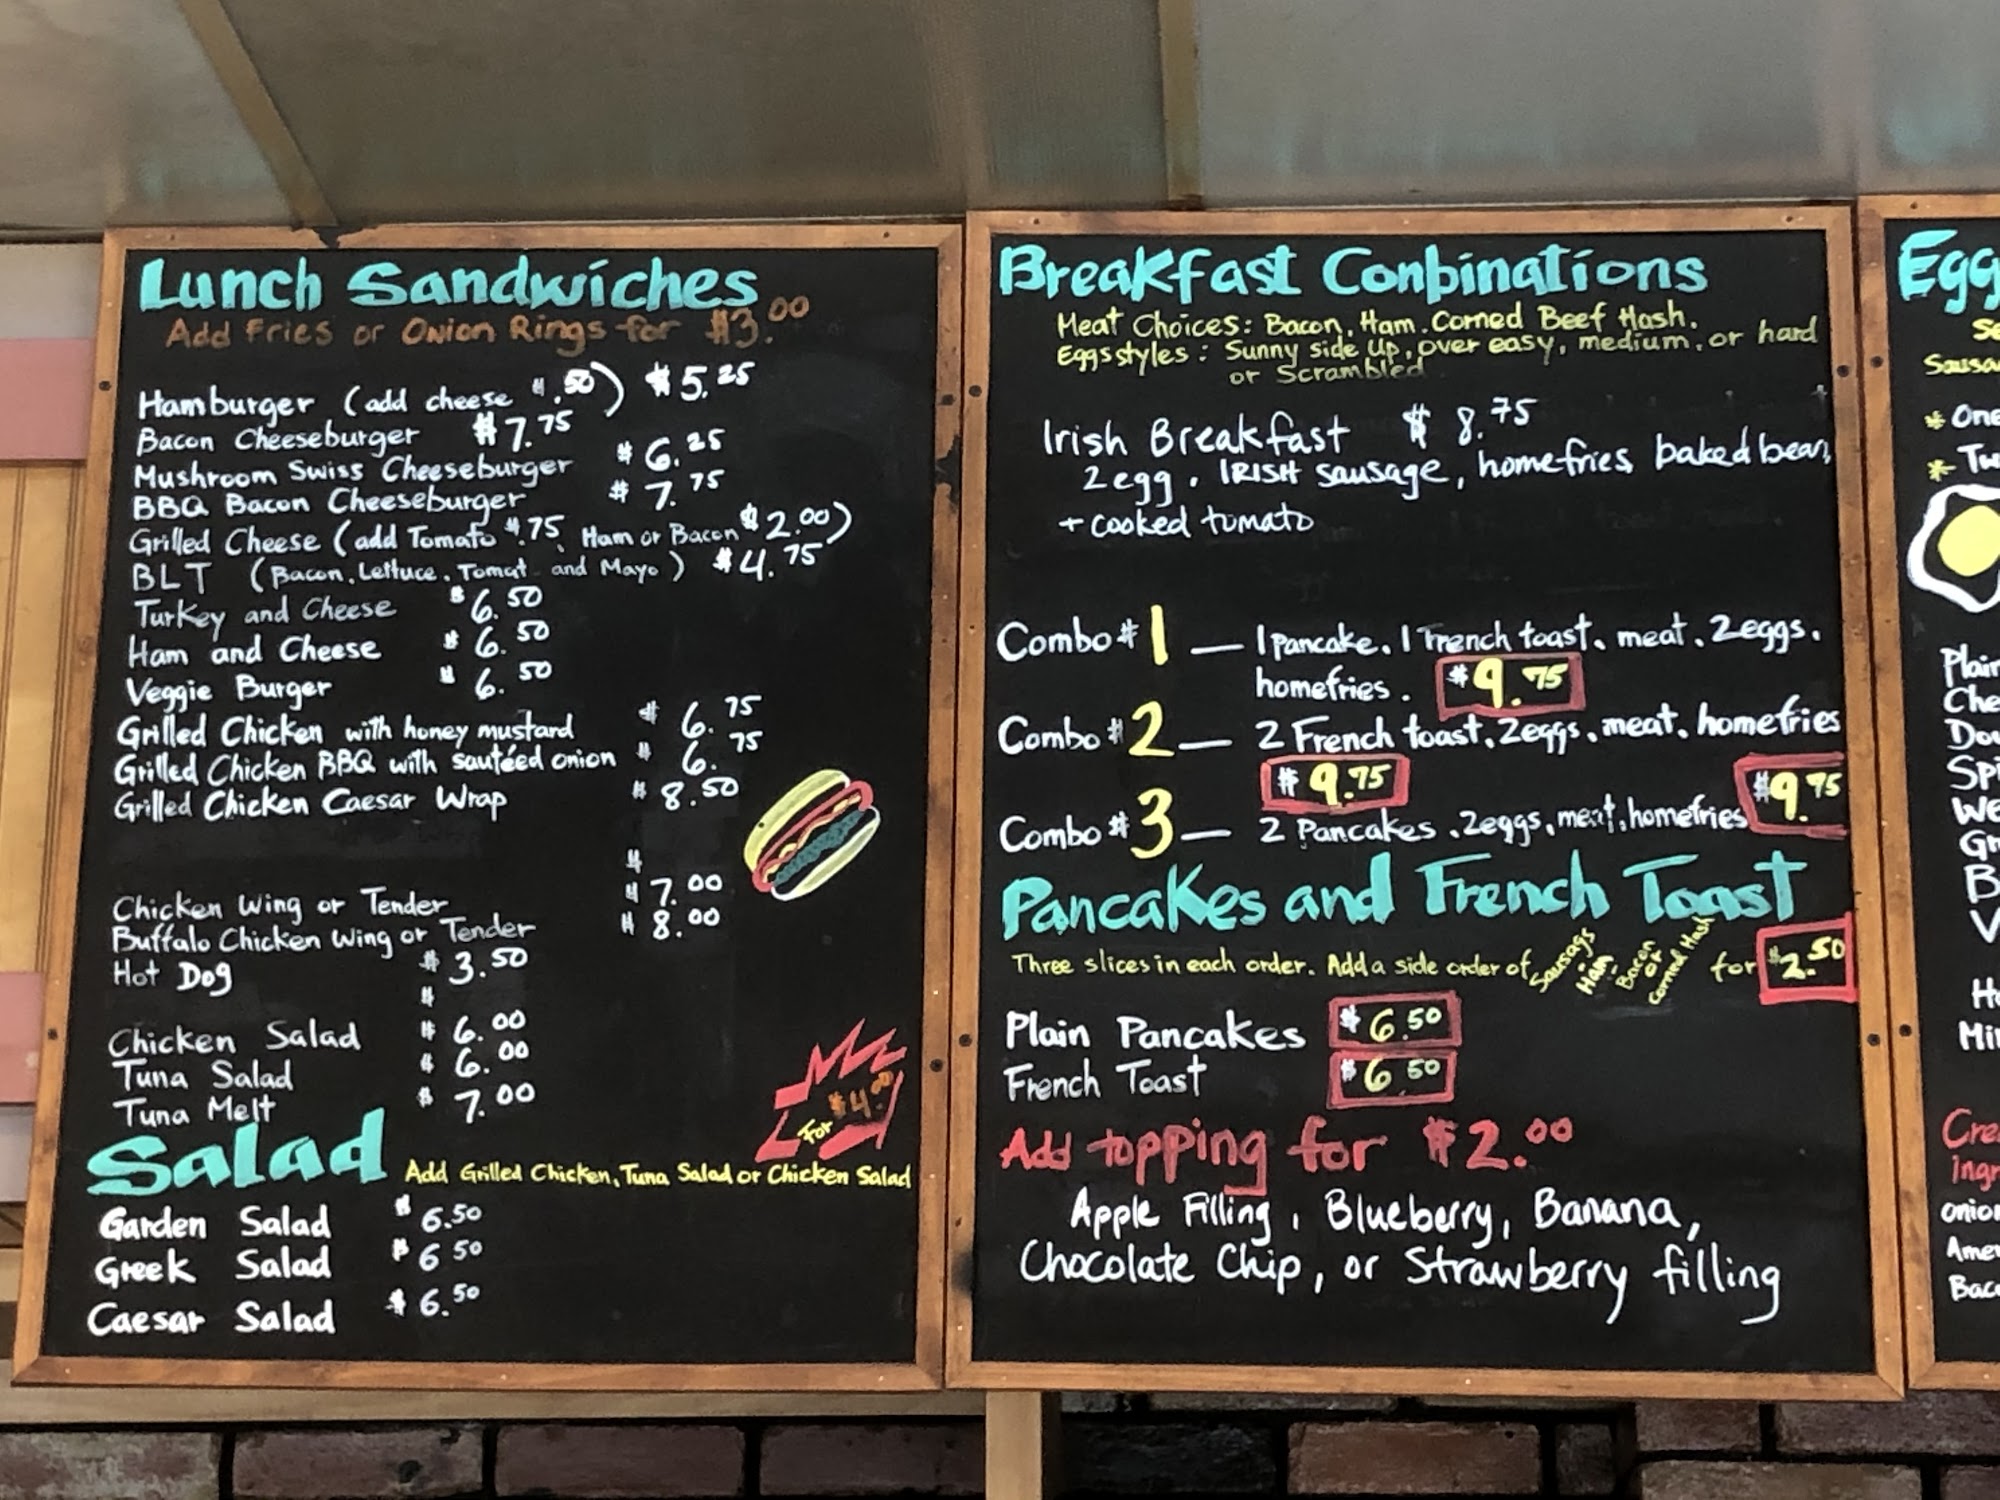 Lunch Sandwiches
Add Fries or Onion Rings for $3.00
Hamburger (add cheese $.50) $5.25
Bacon Cheeseburger $7.75
Mushroom Swiss Cheeseburger $6.25
BBQ Bacon Cheeseburger $7.75
Grilled Cheese (add Tomato $.75, Ham or Bacon $2.00)
BLT (Bacon, Lettuce, Tomat and Mayo) $4.75
Turkey and Cheese $6.50
Ham and Cheese $6.50
Veggie Burger $6.50
Grilled Chicken with honey mustard $6.75
Grilled Chicken BBQ with sautéed onion $6.75
Grilled Chicken Caesar Wrap $8.50
$
Chicken Wing or Tender $7.00
Buffalo Chicken Wing or Tender $8.00
Hot Dog $3.50
$
Chicken Salad $6.00
Tuna Salad $6.00
Tuna Melt $7.00
Salad Add Grilled Chicken, Tuna Salad or Chicken Salad
For $4.00
Garden Salad $6.50
Greek Salad $6.50
Caesar Salad $6.50
Breakfast Conbinations
Meat Choices: Bacon, Ham. Corned Beef Hash.
Eggs styles: Sunny side Up, over easy, medium, or hard
or Scrambled
Irish Breakfast $8.75
2 egg, IRISH sausage, homefries baked bean,
+ cooked tomato
Combo #1 — 1 pancake, 1 French toast, meat, 2 eggs,
homefries. $9.75
Combo #2 — 2 French toast, 2 eggs, meat, homefries
$9.75
Combo #3 — 2 Pancakes, 2 eggs, meat, homefries $9.75
Pancakes and French Toast
Three slices in each order. Add a side order of Sausags Ham Bacon or Corned Hash for $2.50
Plain Pancakes $6.50
French Toast $6.50
Add topping for $2.00
Apple Filling, Blueberry, Banana,
Chocolate Chip, or Strawberry filling
Egg
Sausa
* One
* Tw
Plain
Che
Spi
We
Gr
B
V
Mi
Cre
ingr
onion
Amer
Baco